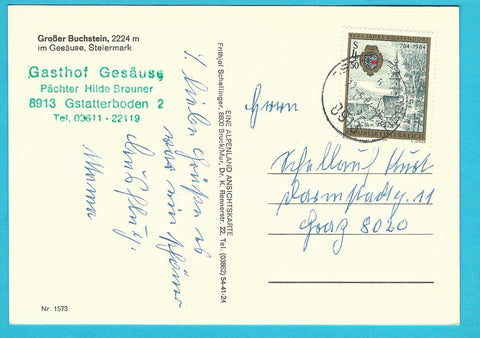 Großer Buchstein, 2224 m
im Gesäuse, Steiermark
Gasthof Gesäuse
Pächter Hilde Brauner
8913 Gstatterboden 2
Tel. 03611 - 22119
Lieben Grüße es
war ein schöner
Ausflug.
Mama
Nr. 1573
EINE ALPENLAND ANSICHTSKARTE
Frithjof Schellinger, 8600 Bruck/Mur, Dr. K. Rennerstr. 22, Tel. (03862) 54-41-24
1200 JAHRE
784-1984
S 4
50
REPUBLIK ÖSTERREICH
Herrn
Kurt
11
Graz 8020